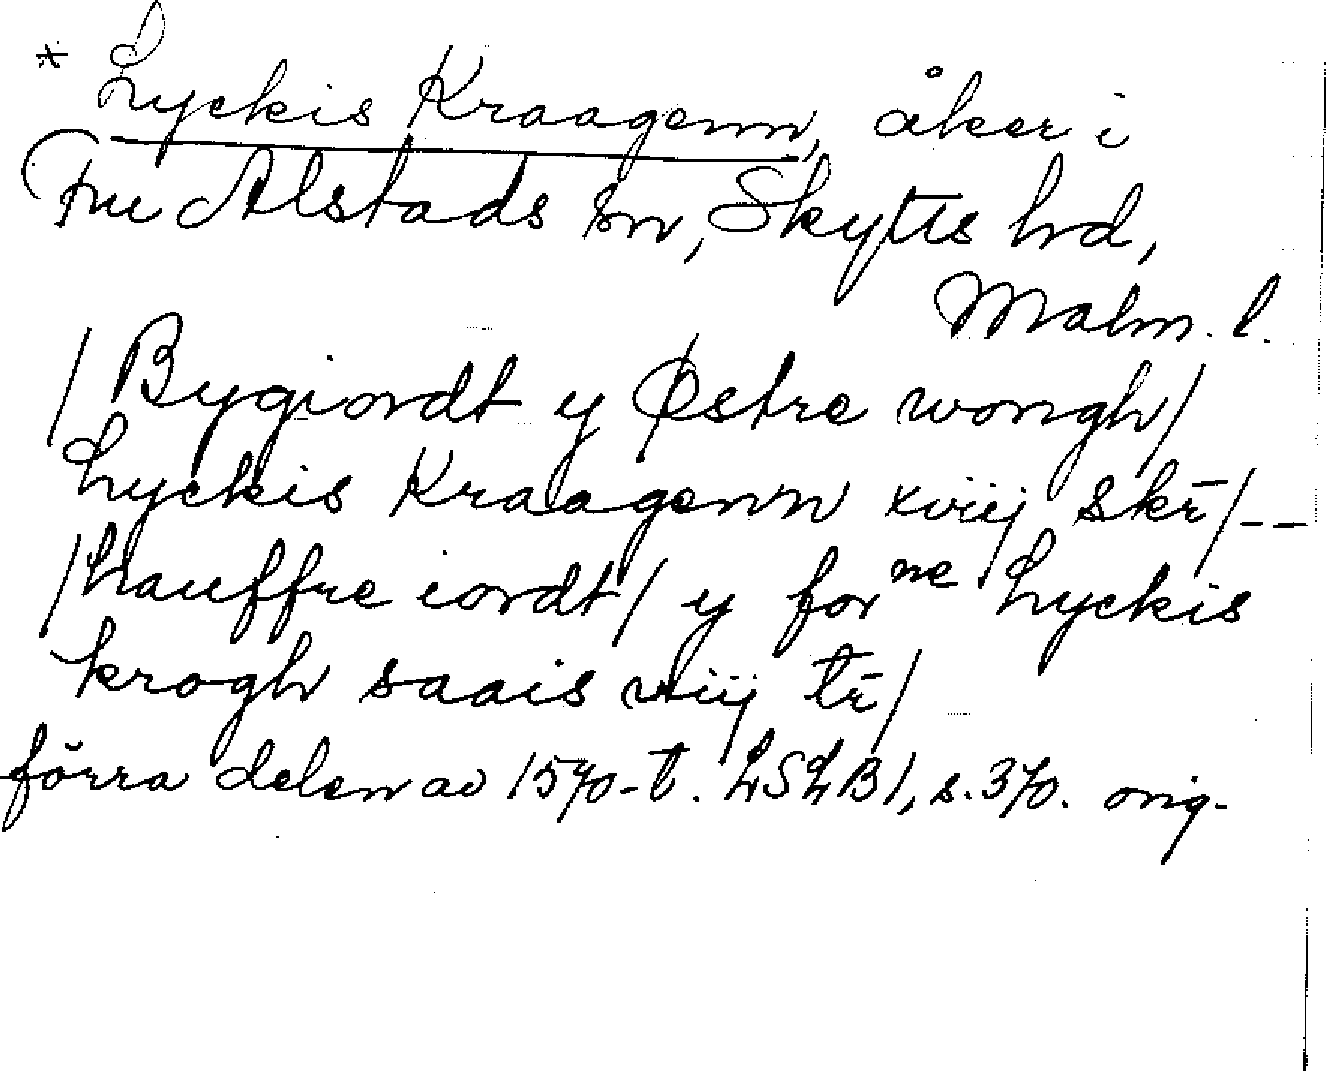 * Lyckis Kraagenn, åker i
Fru Alstads sn, Skytts hd,
Malm. l.
/Bygiordt y Østre wongh/
Lyckis Kraagenn xviij skr̄/--
/hauffre iordt/ y for ne Lyckis
krogh saais viij tr̄/
förra delen av 1570-t. LSLB1, s. 370. orig.